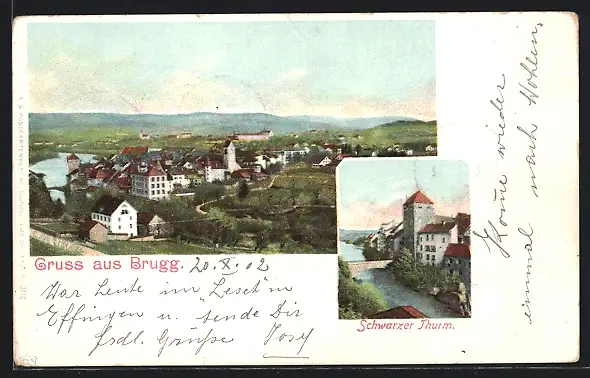 Gruss aus Brugg. 20.X.02
War heute im "Leset" in
Effingen u. sende Dir
frdl. Grüße Josy
Schwarzer Thurm.
Kome wieder
einmal nach Wohlen.